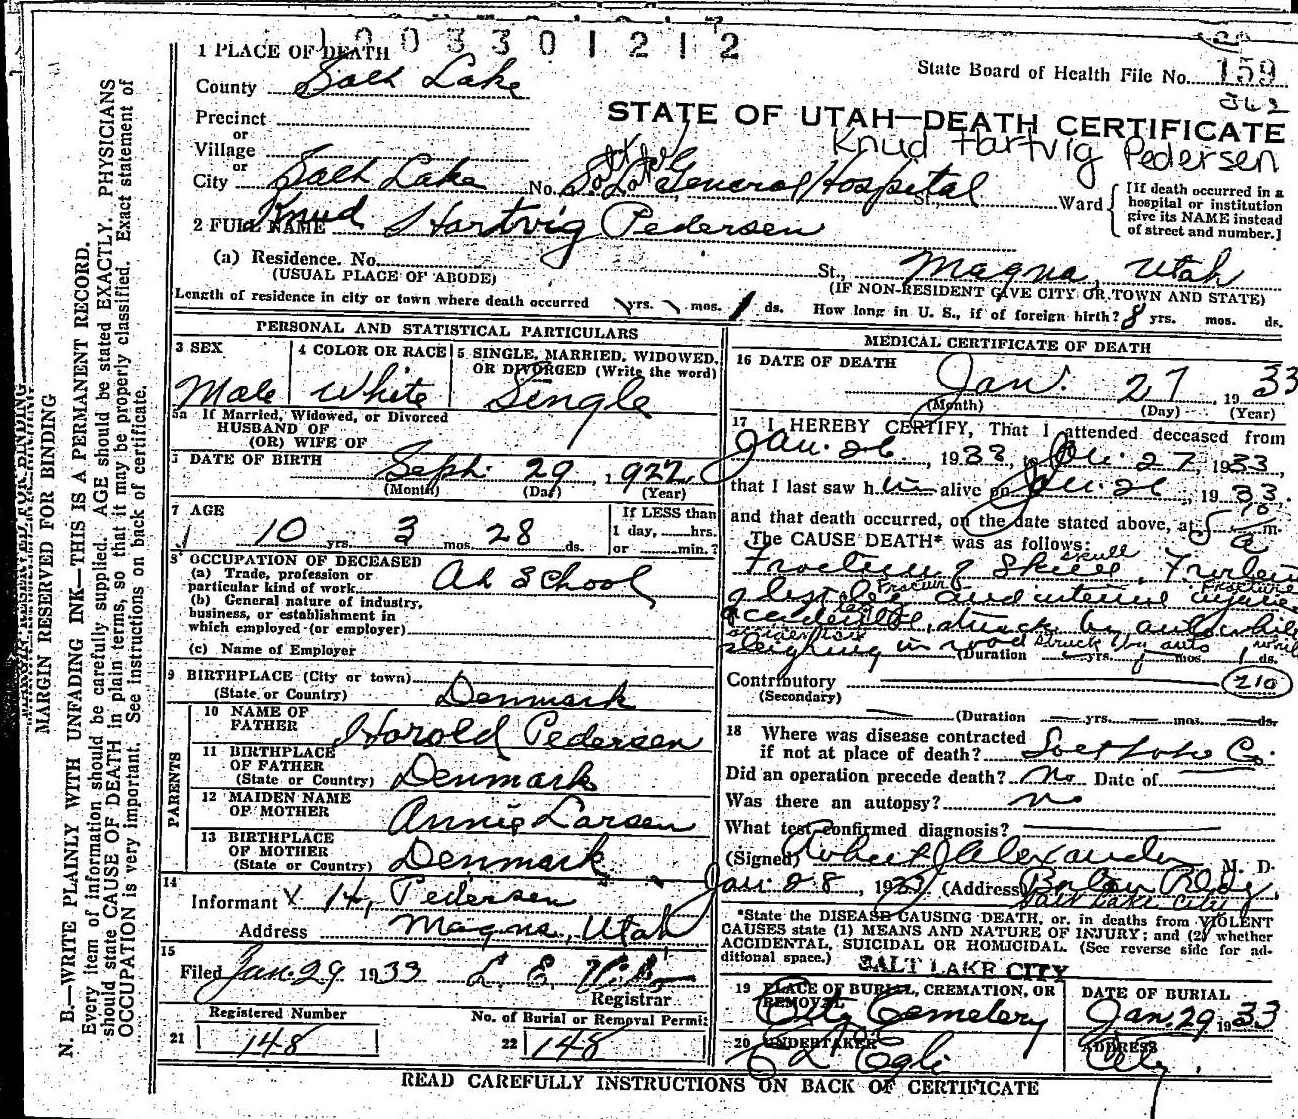 1003301212
1 PLACE OF DEATH
State Board of Health File No. 159
362
County Salt Lake
STATE OF UTAH—DEATH CERTIFICATE
Knud Hartvig Pedersen
Precinct
or
Village
or
City Salt Lake No. Salt Lake General Hospital St., Ward
[If death occurred in a hospital or institution give its NAME instead of street and number.]
2 FULL NAME Knud Hartvig Pedersen
(a) Residence. No. St., Magna, Utah
(USUAL PLACE OF ABODE) (IF NON-RESIDENT GIVE CITY OR TOWN AND STATE)
Length of residence in city or town where death occurred yrs. mos. 1 ds. How long in U. S., if of foreign birth? 8 yrs. mos. ds.
PERSONAL AND STATISTICAL PARTICULARS
3 SEX Male
4 COLOR OR RACE White
5 SINGLE, MARRIED, WIDOWED, OR DIVORCED (Write the word) Single
5a If Married, Widowed, or Divorced
HUSBAND OF
(OR) WIFE OF
DATE OF BIRTH Sept. 29, 1922
(Month) (Day) (Year)
7 AGE 10 yrs. 3 mos. 28 ds.
If LESS than
1 day, hrs.
or min.?
8 OCCUPATION OF DECEASED
(a) Trade, profession or
particular kind of work At School
(b) General nature of industry,
business, or establishment in
which employed (or employer)
(c) Name of Employer
9 BIRTHPLACE (City or town)
(State or Country) Denmark
PARENTS
10 NAME OF
FATHER Harold Pedersen
11 BIRTHPLACE
OF FATHER
(State or Country) Denmark
12 MAIDEN NAME
OF MOTHER Annie Larsen
13 BIRTHPLACE
OF MOTHER
(State or Country) Denmark
14
Informant x H, Pedersen
Address Magna, Utah
15
Filed Jan. 29 1933 L. E.
Registrar
Registered Number
21 148
No. of Burial or Removal Permit
22 148
MEDICAL CERTIFICATE OF DEATH
16 DATE OF DEATH Jan. 27 1933
(Month) (Day) (Year)
17 I HEREBY CERTIFY, That I attended deceased from
Jan. 26, 1933, to Jan. 27, 1933,
that I last saw him alive on Jan. 26, 1933.
and that death occurred, on the date stated above, at 5 10 a m.
The CAUSE DEATH* was as follows:
skull
Fracture of Skull, Fracture
Fracture
of left leg and internal injuries
accidental, struck by auto while
struck by auto while
sleighing in road (Duration yrs. mos. 1 ds.
Contributory 210
(Secondary)
(Duration yrs. mos. ds.
18 Where was disease contracted
if not at place of death? Salt Lake Co.
Did an operation precede death? No Date of
Was there an autopsy? no
What test confirmed diagnosis?
(Signed) Robert J Alexander M. D.
Jan. 28, 1933 (Address) Boston Bldg,
Salt Lake City
*State the DISEASE CAUSING DEATH, or, in deaths from VIOLENT
CAUSES state (1) MEANS AND NATURE OF INJURY; and (2) whether
ACCIDENTAL, SUICIDAL OR HOMICIDAL. (See reverse side for ad-
ditional space.)
SALT LAKE CITY
19 PLACE OF BURIAL, CREMATION, OR
REMOVAL
City Cemetery
DATE OF BURIAL
Jan. 29 1933
20 UNDERTAKER
ADDRESS
City.
READ CAREFULLY INSTRUCTIONS ON BACK OF CERTIFICATE
MARGIN RESERVED FOR BINDING
N. B.—WRITE PLAINLY WITH UNFADING INK—THIS IS A PERMANENT RECORD.
Every item of information should be carefully supplied. AGE should be stated EXACTLY. PHYSICIANS
should state CAUSE OF DEATH in plain terms, so that it may be properly classified. Exact statement of
OCCUPATION is very important. See instructions on back of certificate.